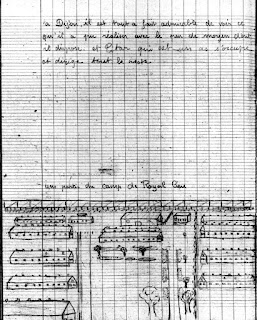 à Dijon, il est tout à fait admirable de voir ce
qu'il a pu réaliser avec le peu de moyen dont
il dispose. et qui est un as s'occupe
et dirige tout le reste.
une partie du camp de Royal Lieu